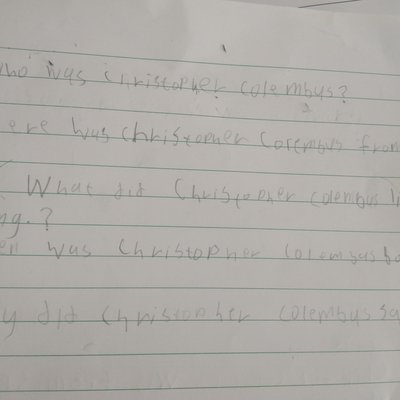 who was christopher colembus?
ere was christopher Corembus from
What did Christopher colembus li
ng.?
en was Christopher Colembus bo
y did christopher colembus sa